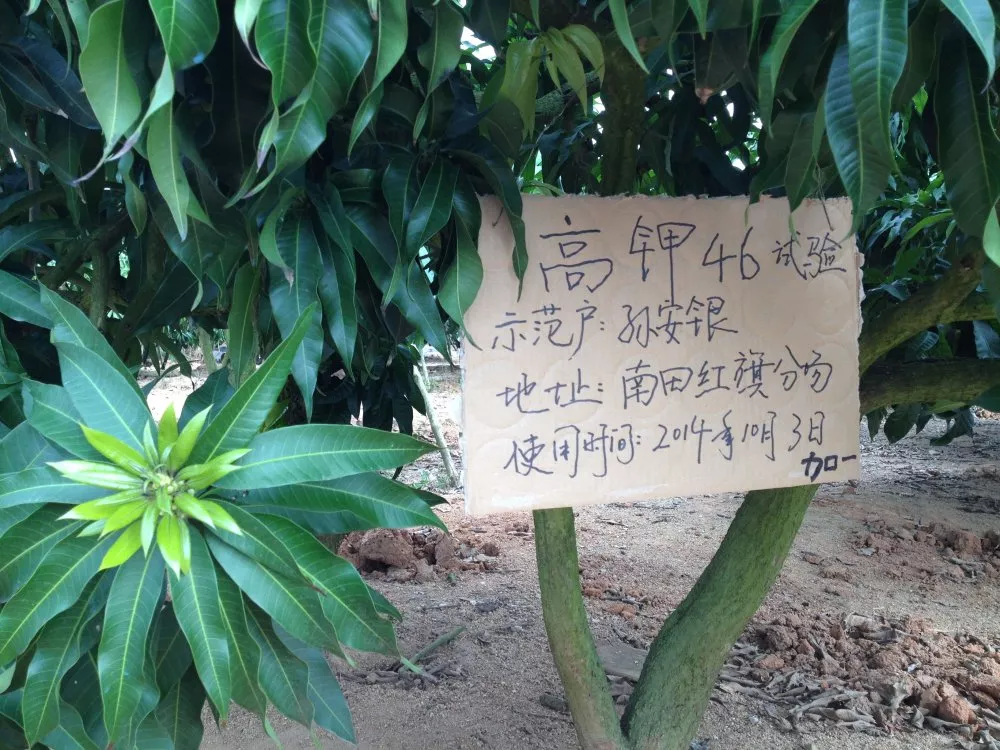 高钾46试验
示范户:孙安银
地址:南田红旗分场
使用时间:2014年10月3日
加一